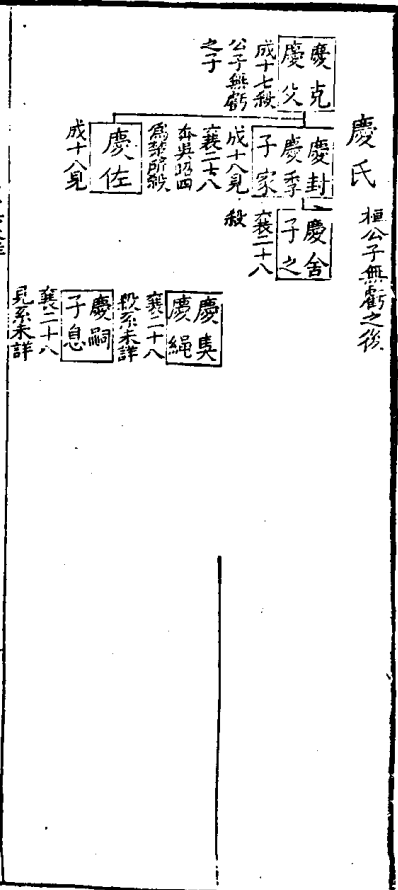 慶氏 桓公子無虧之後
慶克
慶父
成十七殺
公子無虧
之子
慶封
慶季
子家
成十八見
襄二十八
奔吳昭四
爲楚所殺
慶舍
子之
襄二十八
殺
慶佐
成十八見
慶奊
慶繩
襄二十八
殺系未詳
慶嗣
子息
襄二十八
見系未詳